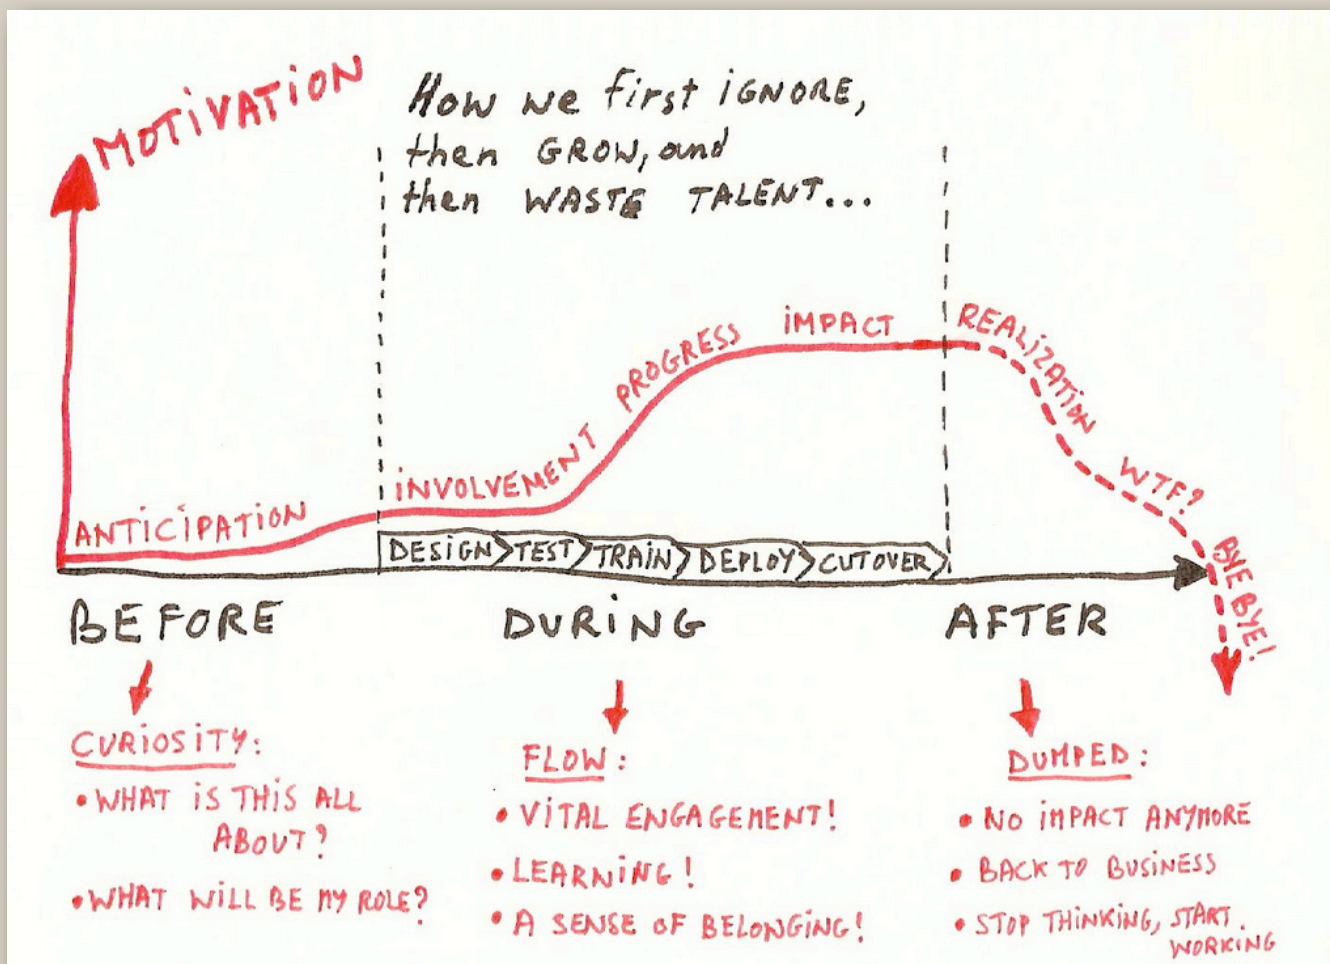 MOTiVATiON
How we first iGNORE,
then GROW, and
then WASTE TALENT...
ANTiCiPATiON
iNVOLVEMENT
PROGRESS
iMPACT
REALiZATiON
WTF?
BYE BYE!
DESiGN
TEST
TRAiN
DEPLOY
CUTOVER
BEFORE
DURiNG
AFTER
CURiOSiTY:
• WHAT iS THiS ALL
ABOUT?
• WHAT WiLL BE MY ROLE?
FLOW:
• ViTAL ENGAGEMENT!
• LEARNiNG!
• A SENSE OF BELONGiNG!
DUMPED:
• NO iMPACT ANYMORE
• BACK TO BUSiNESS
• STOP THiNKiNG, START
WORKiNG